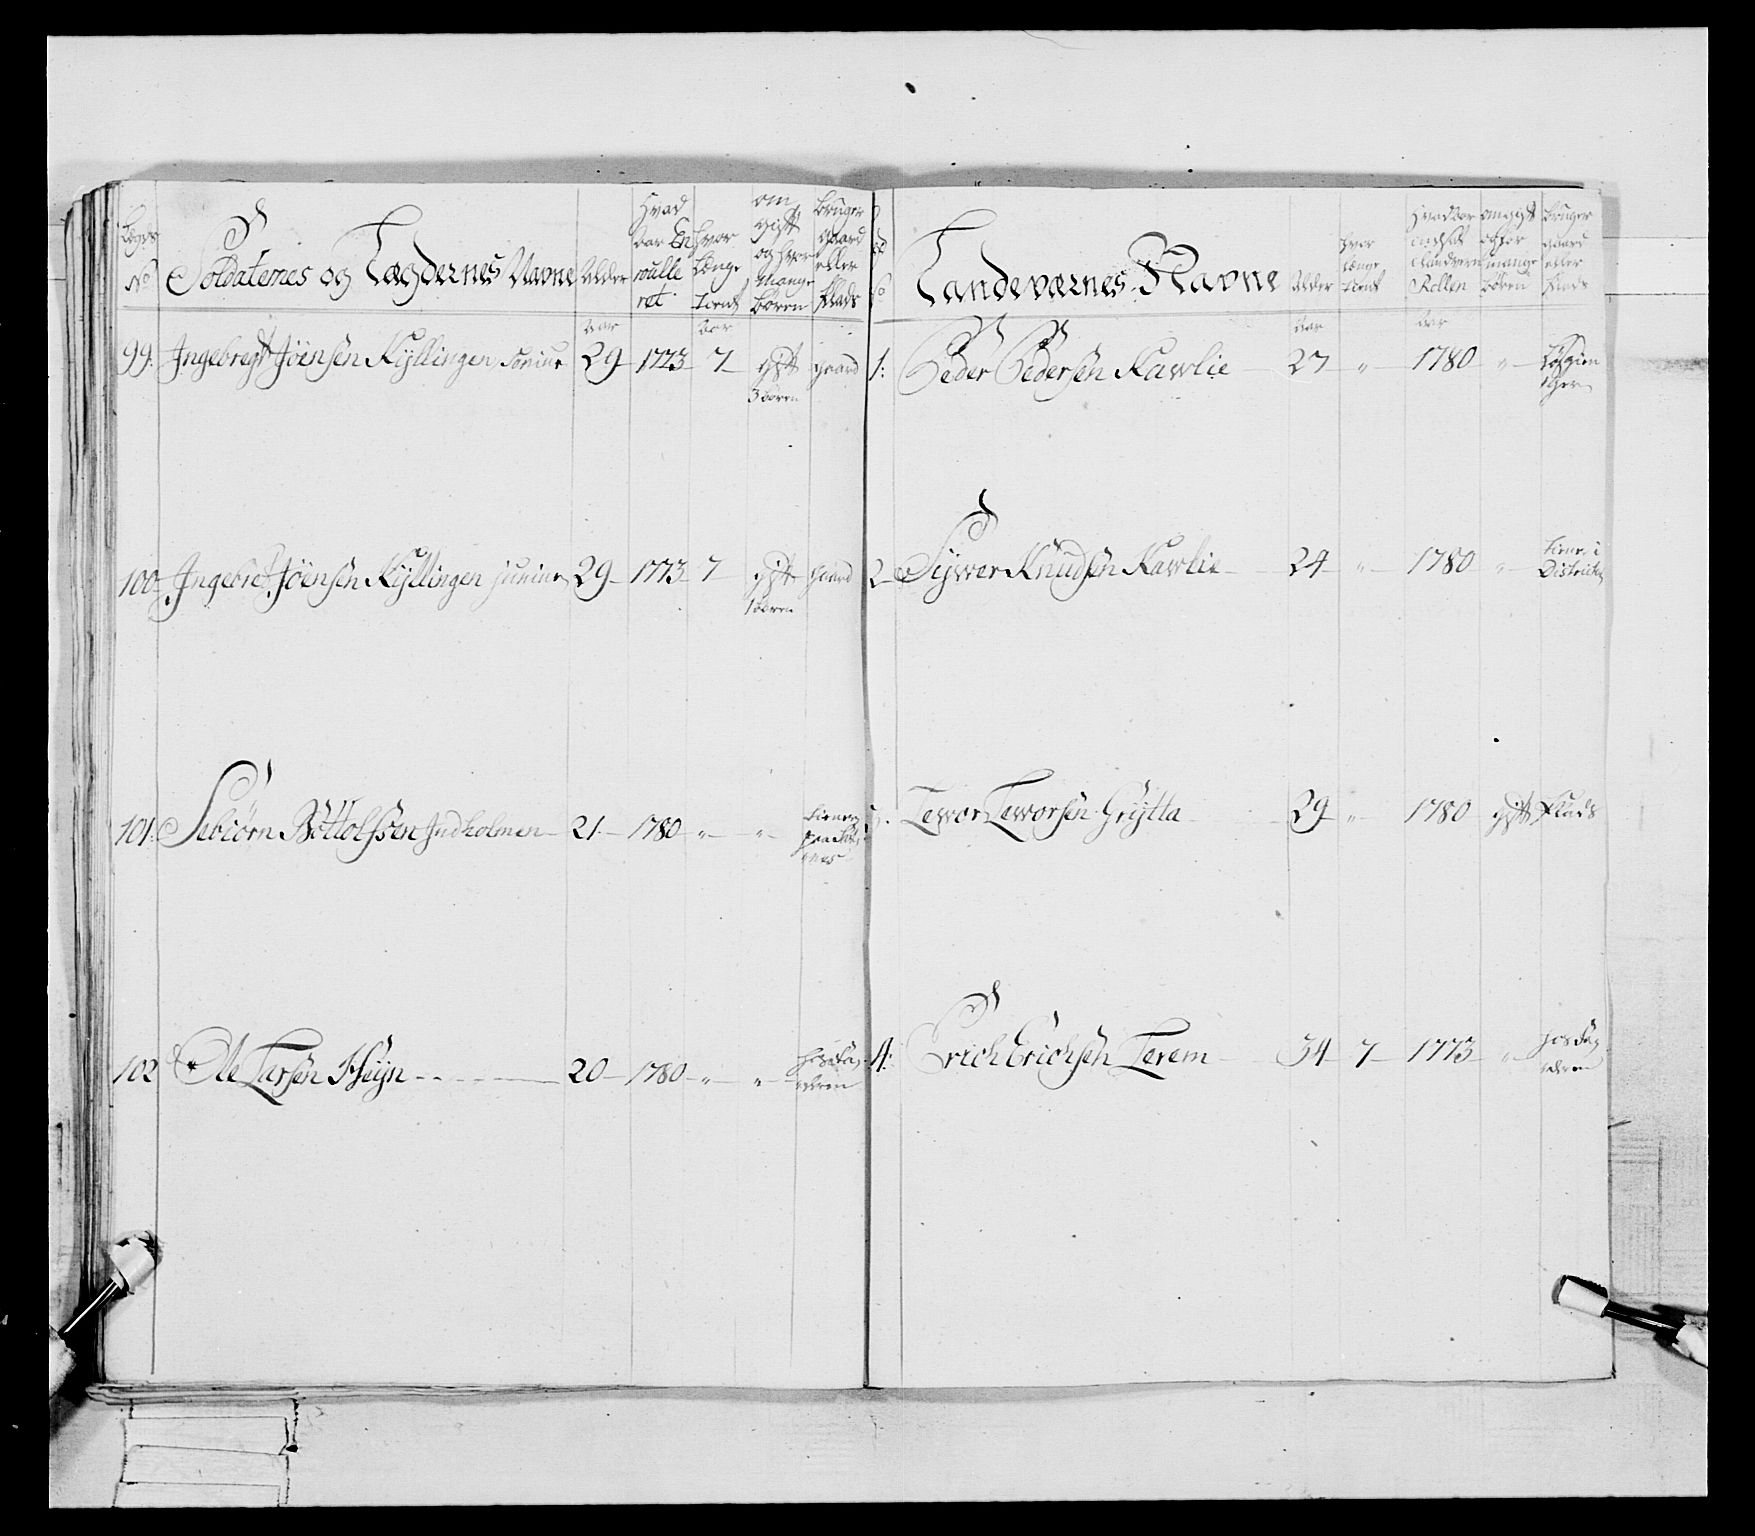 Lægds No
Soldaternes og Lægdernes Navne
Alder
Hvad Aar Enroulleret
hvor Længe tient
om gift og hvor mange børen
bruger gaard eller Plads
Aar
Aar
99. Ingebregt Jöensen Kÿllingen Seniur 29 1773 7 gift 3 børen gaard
100 Ingebret Jöensen Kÿllingen juniur 29 1773 7 gift 1 børen gaard
101. Sebiörn Bottolfsen Indholmen 21. 1780 " "
102 Ole Larsen Hseÿn 20 1780 " "
No
Landeværnes Navne
Alder
hvor længe tient
Hvad Aar indsat i Landværn Rollen
om gift og hvor mange børen
bruger gaard eller Plads
Aar
Aar
1. Peder Pedersen Kawlie 27 " 1780 "
2 Siywer Knudsen Kawlie 24 " 1780 " tiener i Districtet
Tewor Teworsen Grÿtta 29 " 1780 gift Plads
4. Erich Erichsen Lerem 34 7 1773 "